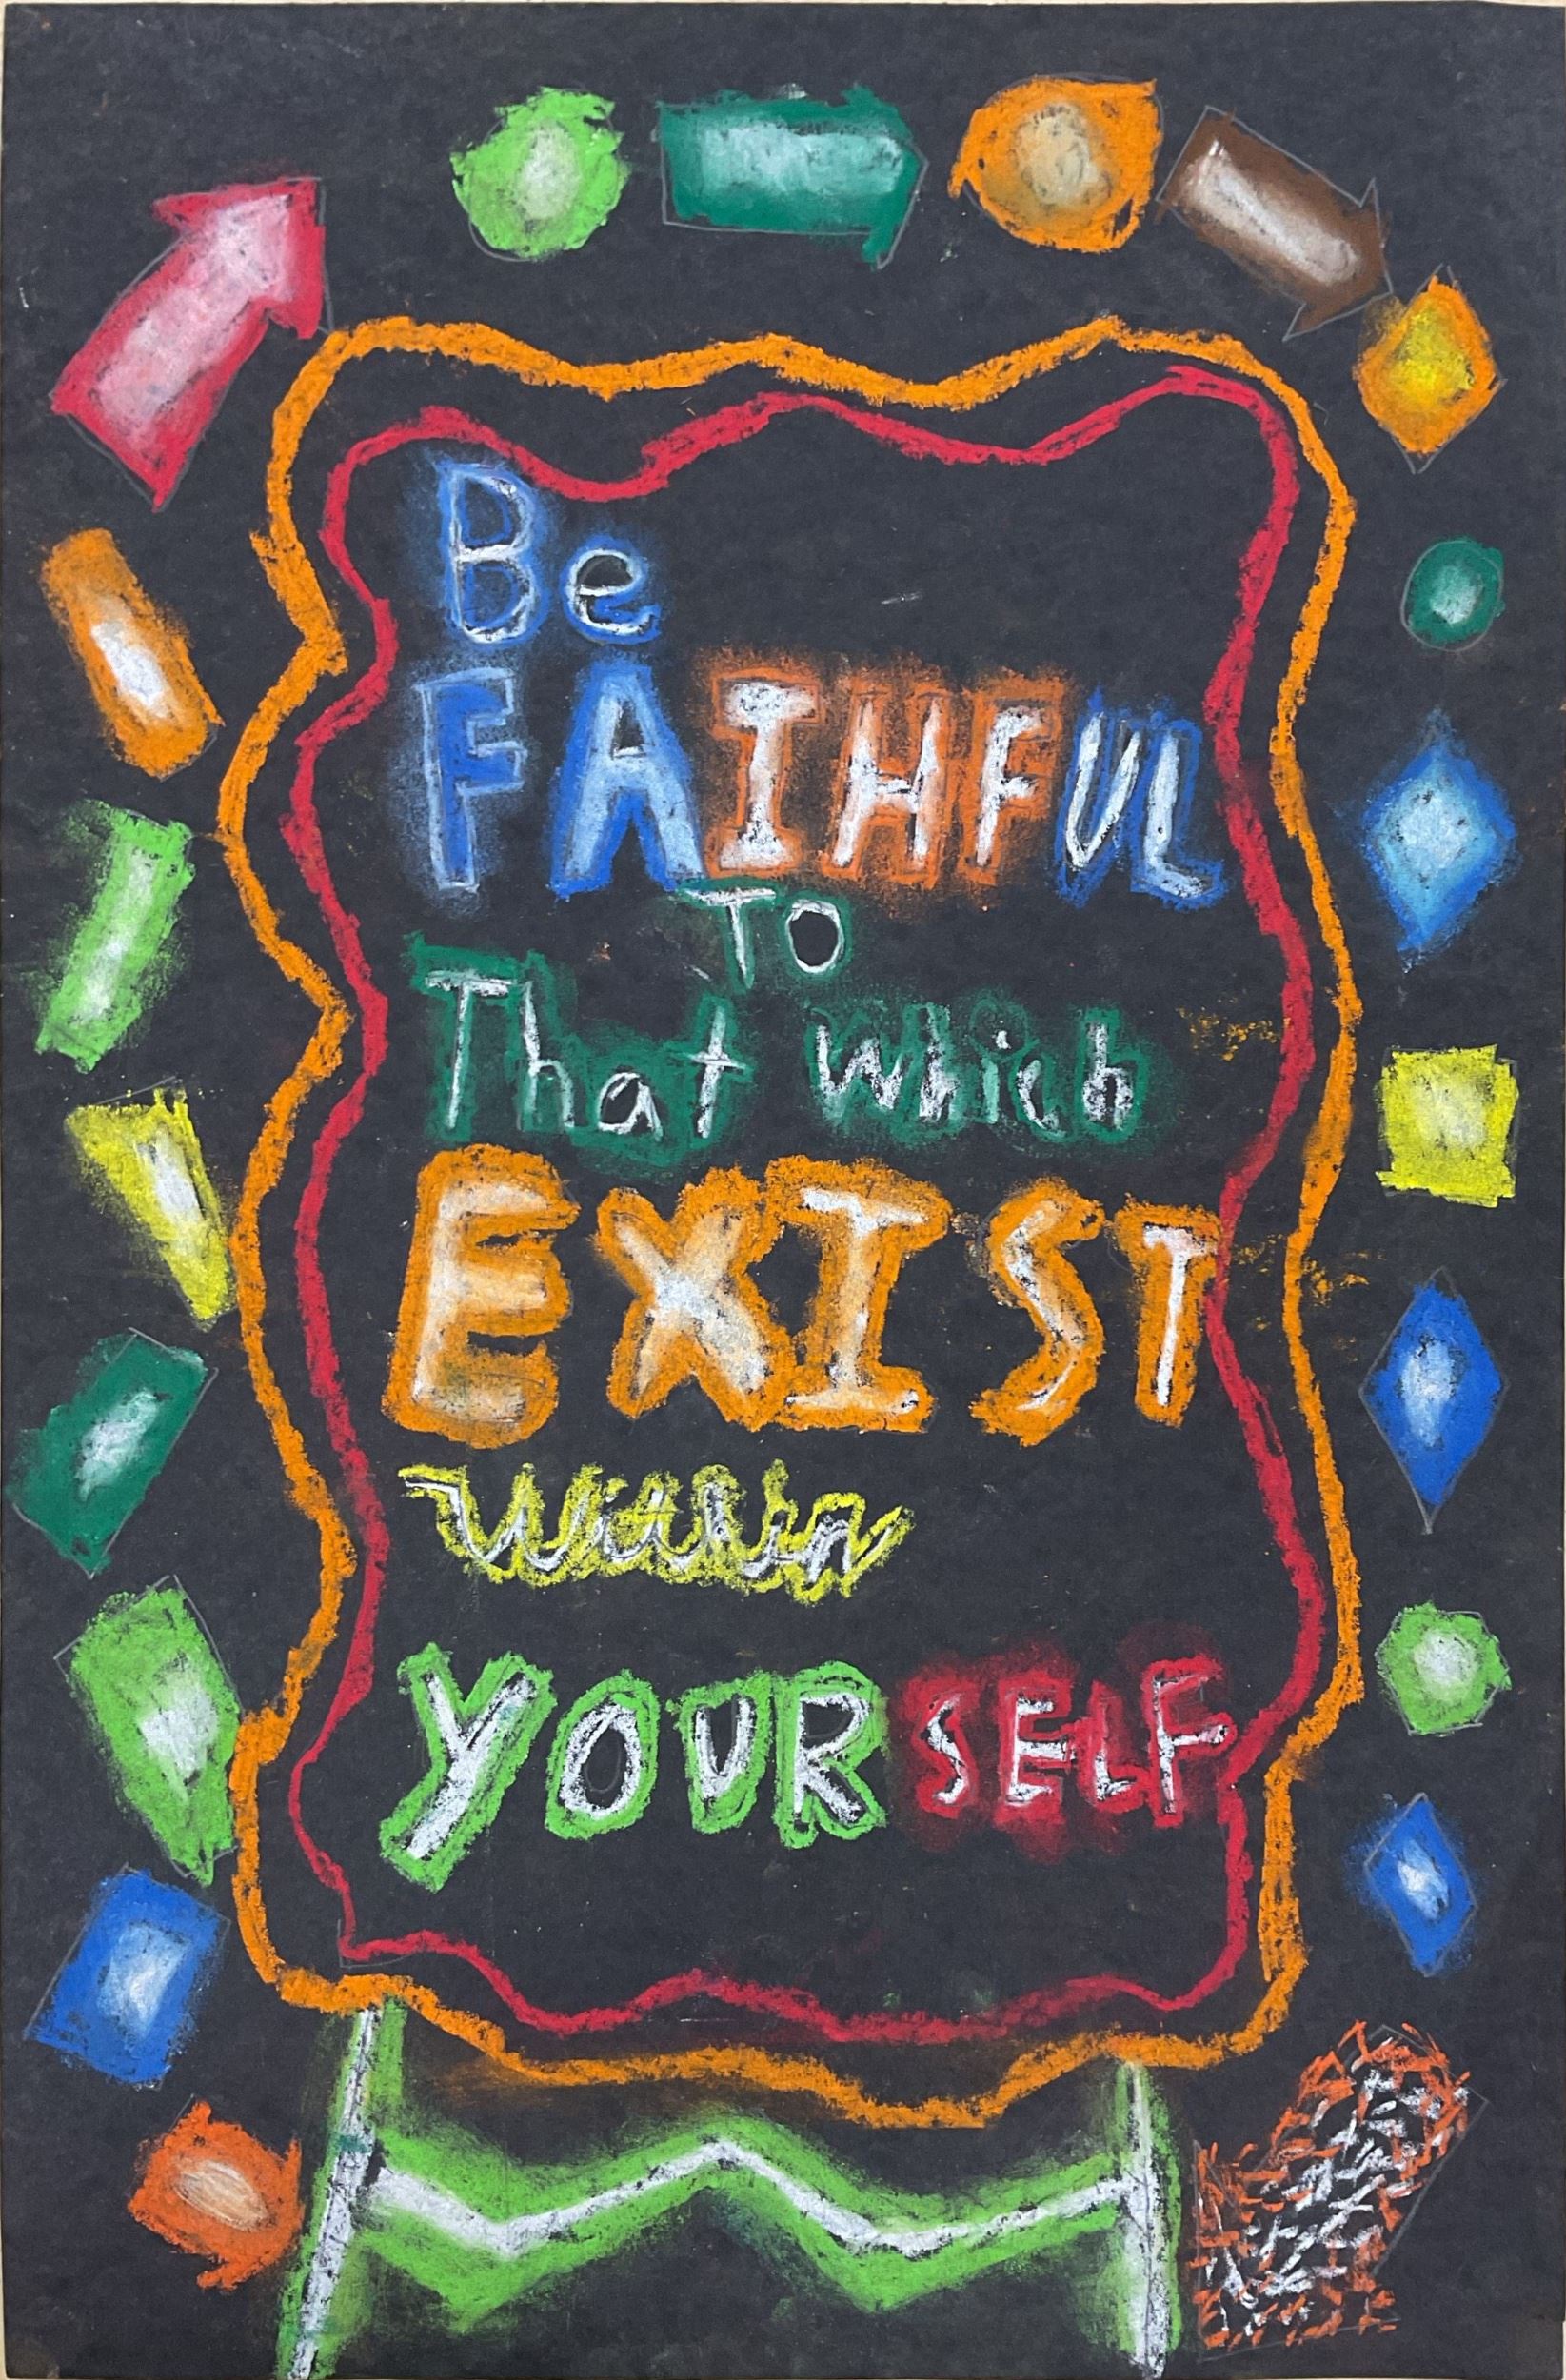 Be
FAIHFUL
TO
That which
EXIST
within
YOURSELF